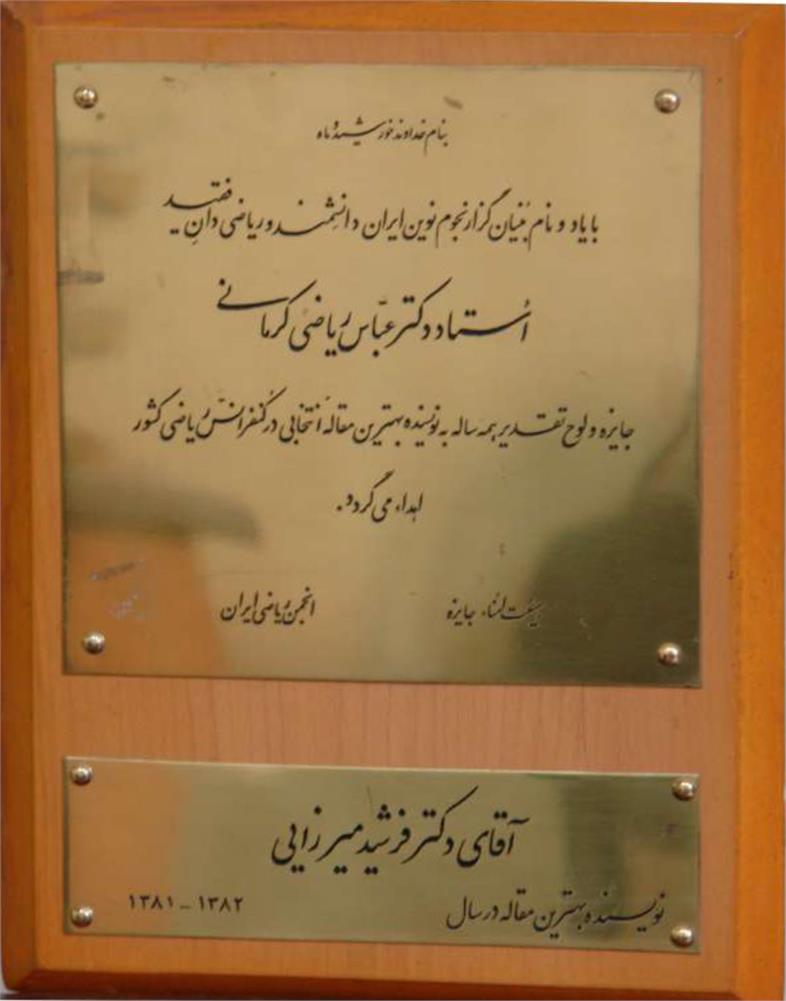 بنام خداوند خورشید و ماه
با یاد و نام بُنیان گزار نجوم نوین ایران دانشمند و ریاضی دانِ فقید
اُستاد دکتر عبّاس ریاضی کرمانی
جایزه و لوح تقدیر همه ساله به نویسنده بهترین مقاله انتخابی در کنفرانس ریاضی کشور
اهداء می گردد.
هیئت اُمناء جایزه انجمن ریاضی ایران
آقای دکتر فرشید میرزایی
نویسنده بهترین مقاله در سال ۱۳۸۱ – ۱۳۸۲